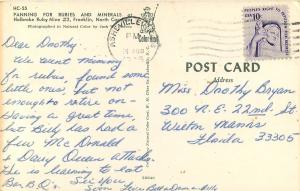 HC-55
PANNING FOR RUBIES AND MINERALS
Holbrooks Ruby Mine #2, Franklin, North
Photographed in Natural Color by
ASHEVILLE
PM
10c
Dear Dorothy:
We went mining
for rubies, found some
little ones, but not
enough to retire on -
Having a great time,
but Billy has had a
few McDonald
& Dairy Queen attacks.
He is learning to eat
Bar.B.Q.
See you
Soon
POST CARD
Address
Miss Dorothy Bryan
300 N.E. 22nd St
Wilton Manors
Florida 33305